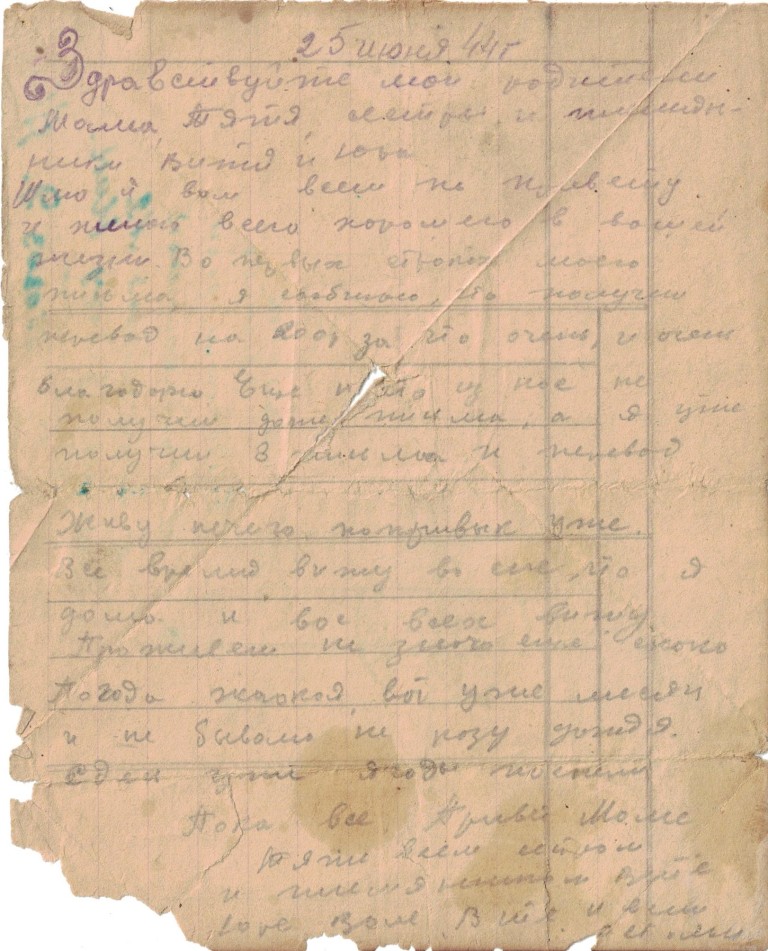 25 июня 44 г
Здравствуйте мои родители
Мама, Тятя, сестры, и племян-
ники Витя и Юра
Шлю я вам всем по привету
и желаю всего хорошего в вашей
жизни. Во первых строках моего
письма, я сообщаю, что получил
перевод на 200р за что очень, и очень
благодарю Еще никто из нас не
получил даже письма, а я уже
получил 3 письма и перевод
Живу ничего, попривык уже.
Все время вижу во сне, что я
дома и вас всех вижу
Проживем не знаю еще сколко
Погода жаркая, вот уже месяц
и не бывало не разу дождя.
Едем уже ягоды поспели
Пока все Привет Маме
Тяти всем сестрам
и племянникам Вите
Юре Вале Вите и всем